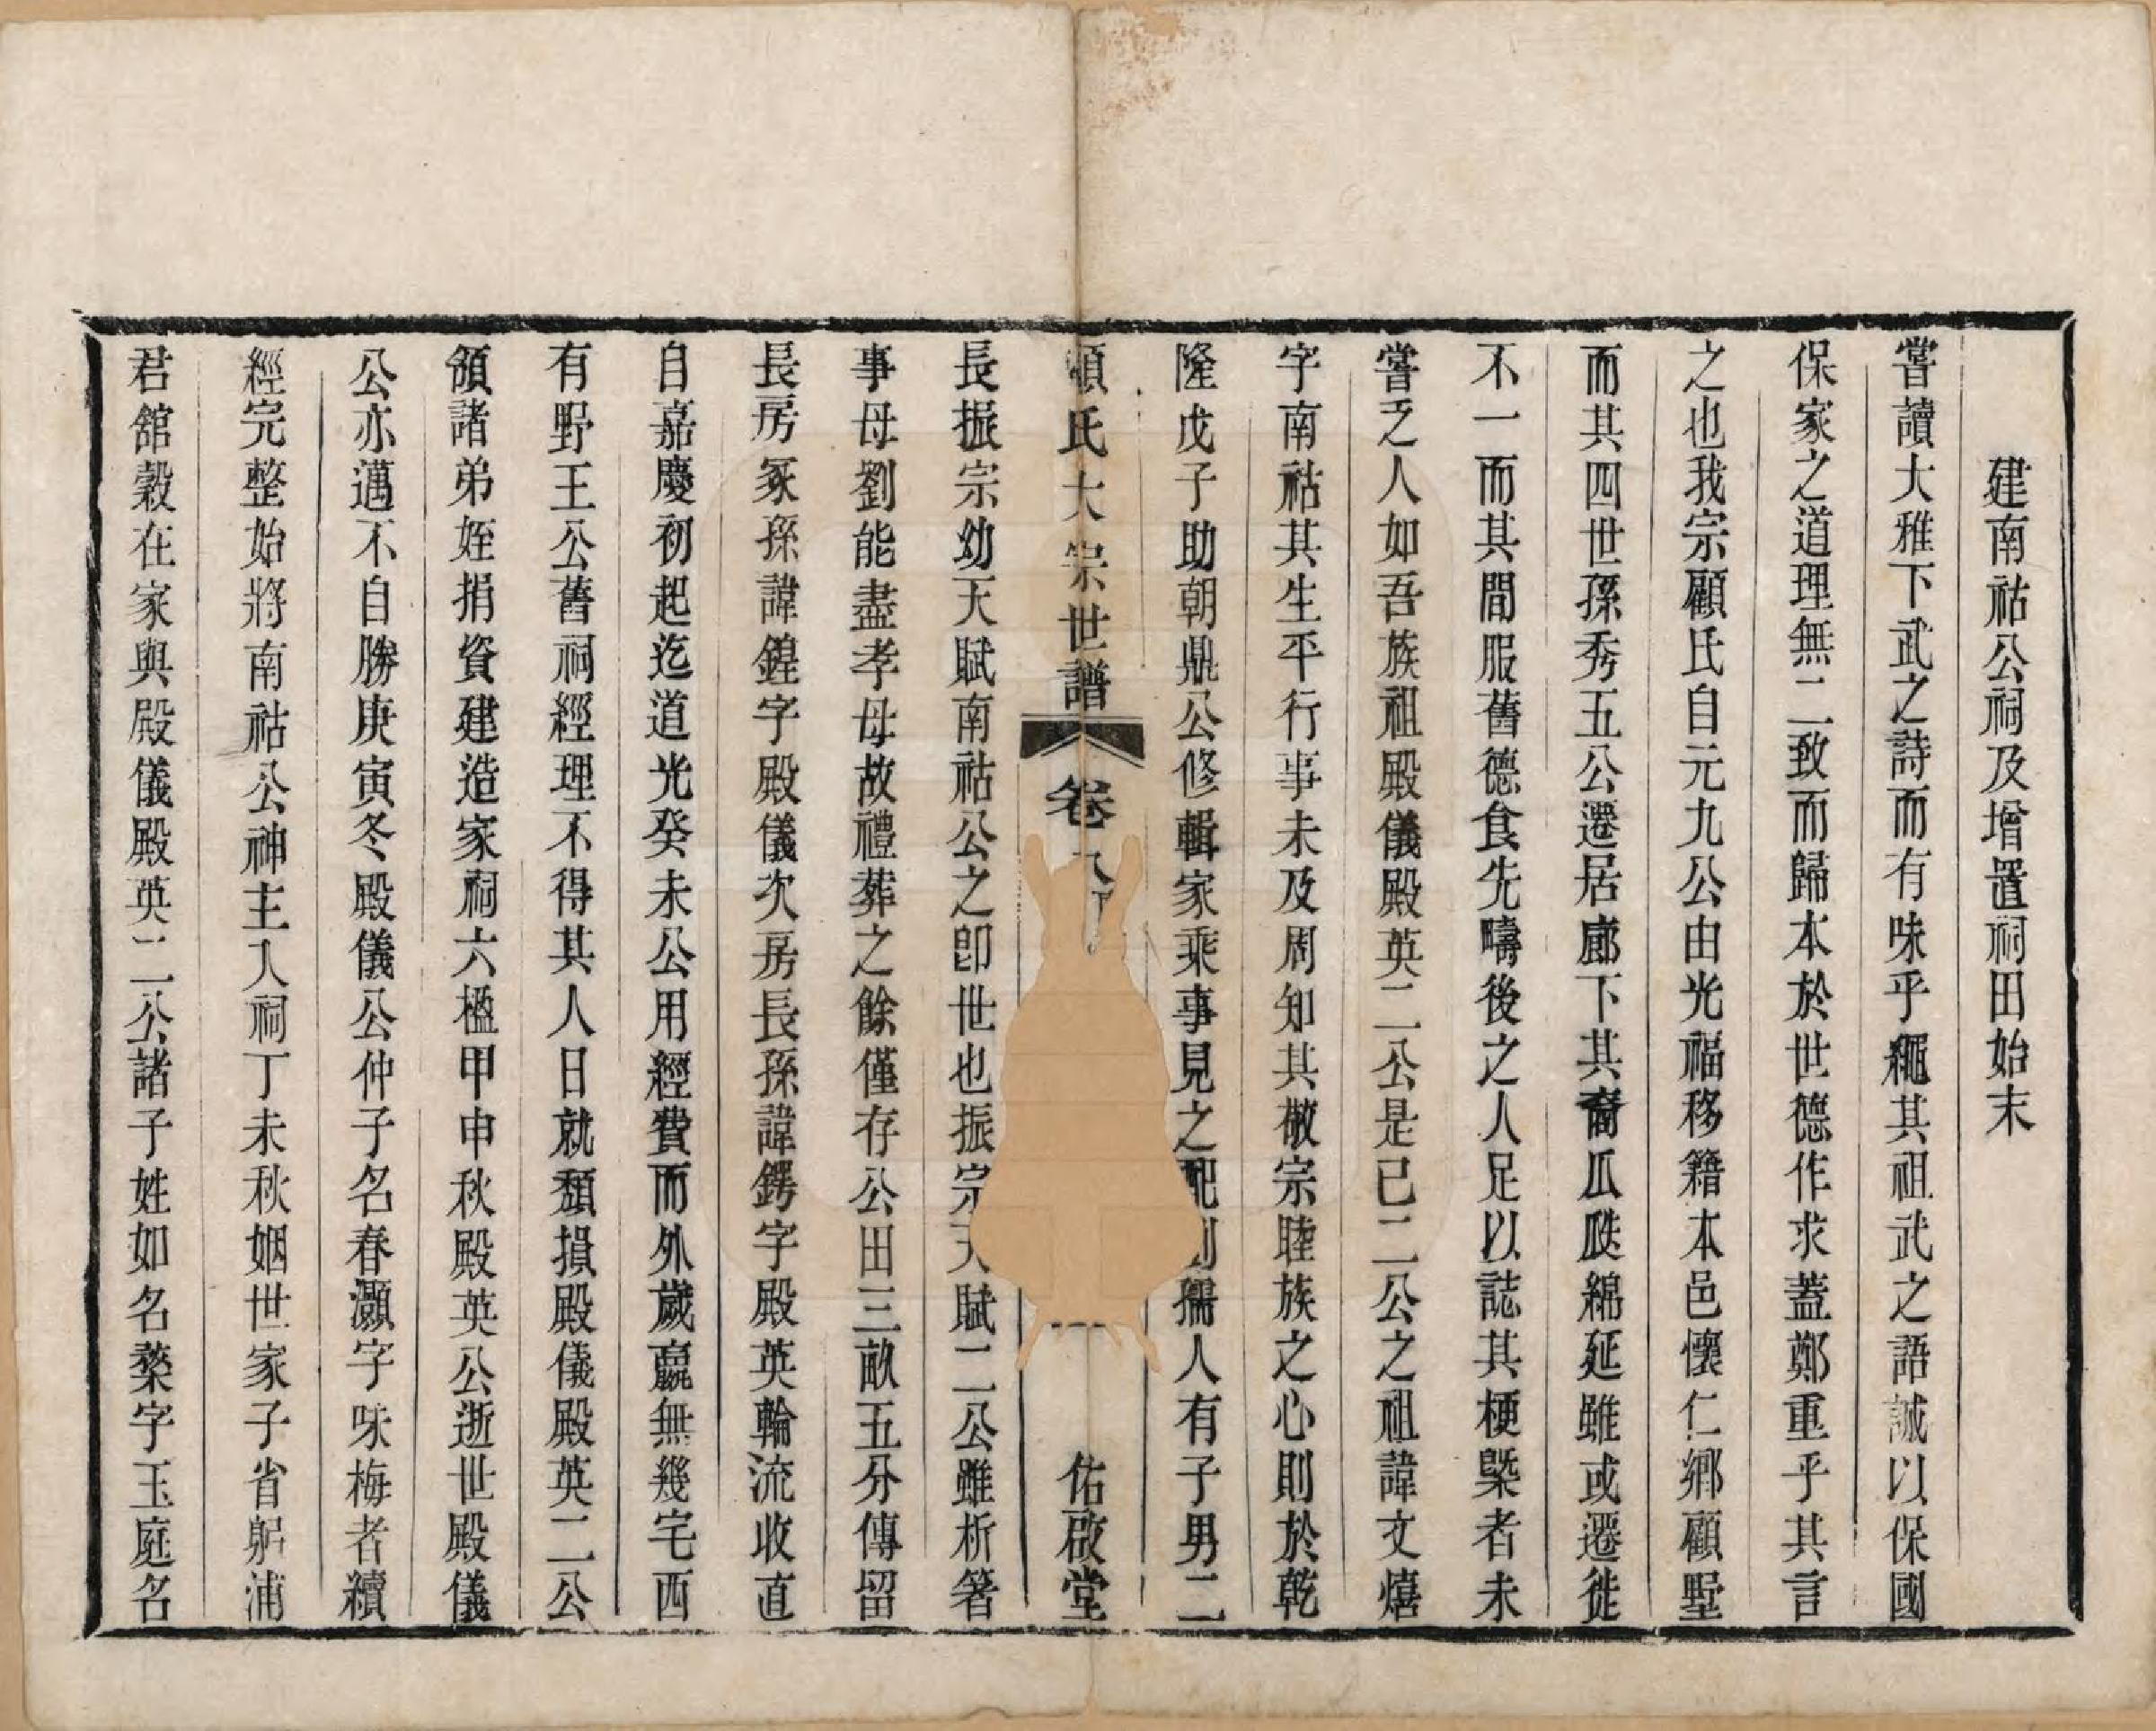 建南祜公祠及增置祠田始末
嘗讀大雅下武之詩而有味乎繩其祖武之語誠以保國
保家之道理無二致而歸本於世德作求蓋鄭重乎其言
之也我宗顧氏自元九公由光福移籍本邑懷仁鄉顧墅
而其四世孫秀五公遷居廊下其裔瓜瓞綿延雖或遷徙
不一而其間服舊德食先疇後之人足以誌其梗槩者未
嘗乏人如吾族祖殿儀殿英二公是已二公之祖諱文熺
字南祜其生平行事未及周知其敬宗睦族之心則於乾
隆戊子助朝鼎公修輯家乘事見之配劉孺人有子男二
顧氏大宗世譜 卷八 佑啟堂
長振宗幼天賦南祜公之卽世也振宗天賦二公雖析箸
事母劉能盡孝母故禮葬之餘僅存公田三畝五分傳留
長房冢孫諱鍠字殿儀次房長孫諱鍔字殿英輪流收直
自嘉慶初起迄道光癸未公用經費而外歲贏無幾宅西
有野王公舊祠經理不得其人日就頹損殿儀殿英二公
領諸弟姪捐資建造家祠六楹甲申秋殿英公逝世殿儀
公亦邁不自勝庚寅冬殿儀公仲子名春灝字味梅者續
經完整始將南祜公神主入祠丁未秋姻世家子省躬浦
君舘穀在家與殿儀殿英二公諸子姓如名蘂字玉庭名